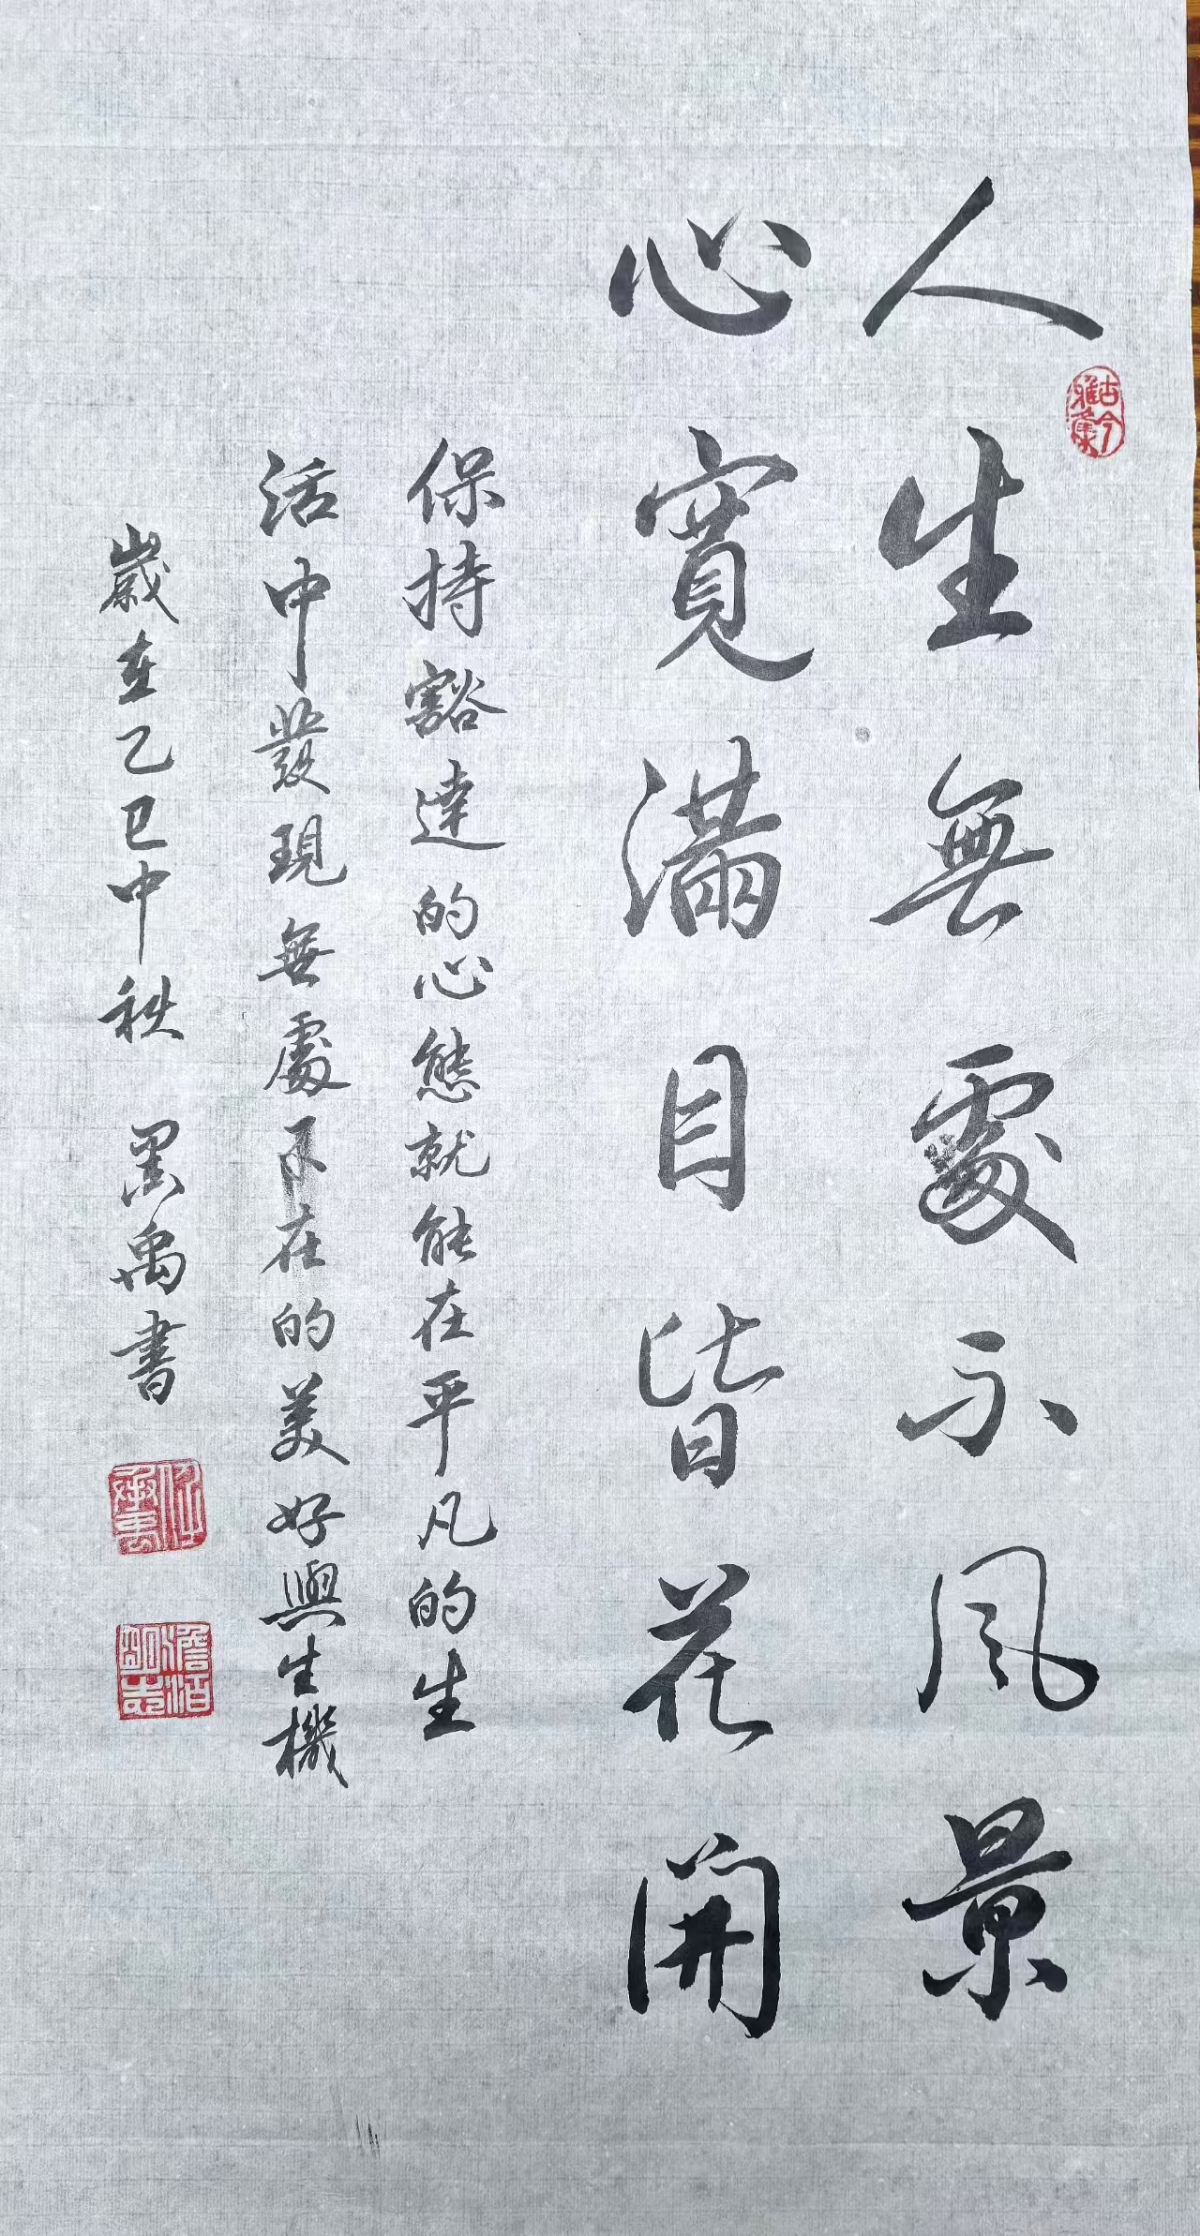 人生無處不風景
心寬滿目皆花開
保持豁達的心態就能在平凡的生
活中發現無處不在的美好與生機
歲在乙巳中秋 墨禹書
古今雅集
澹泊明志